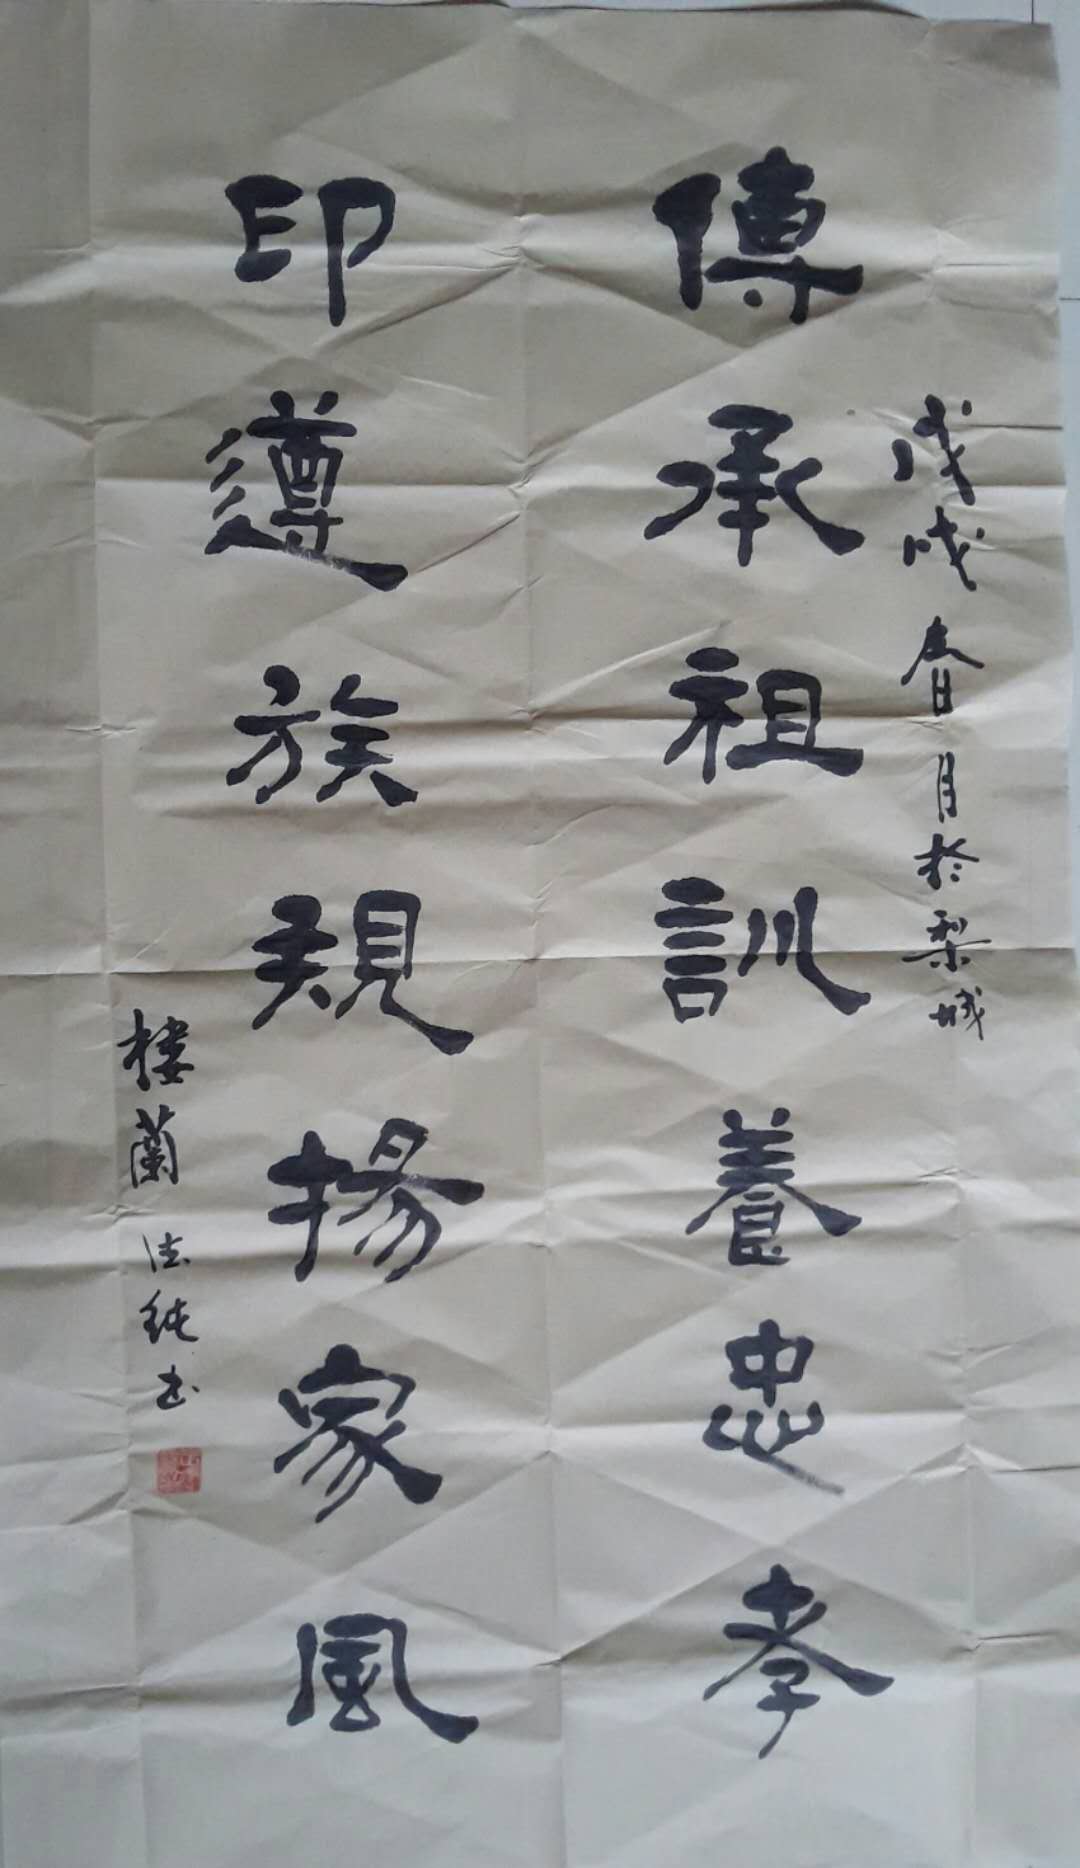 戊戌春月於梨城
傳承祖訓養忠孝
印遵族規揚家風
樓蘭法純书